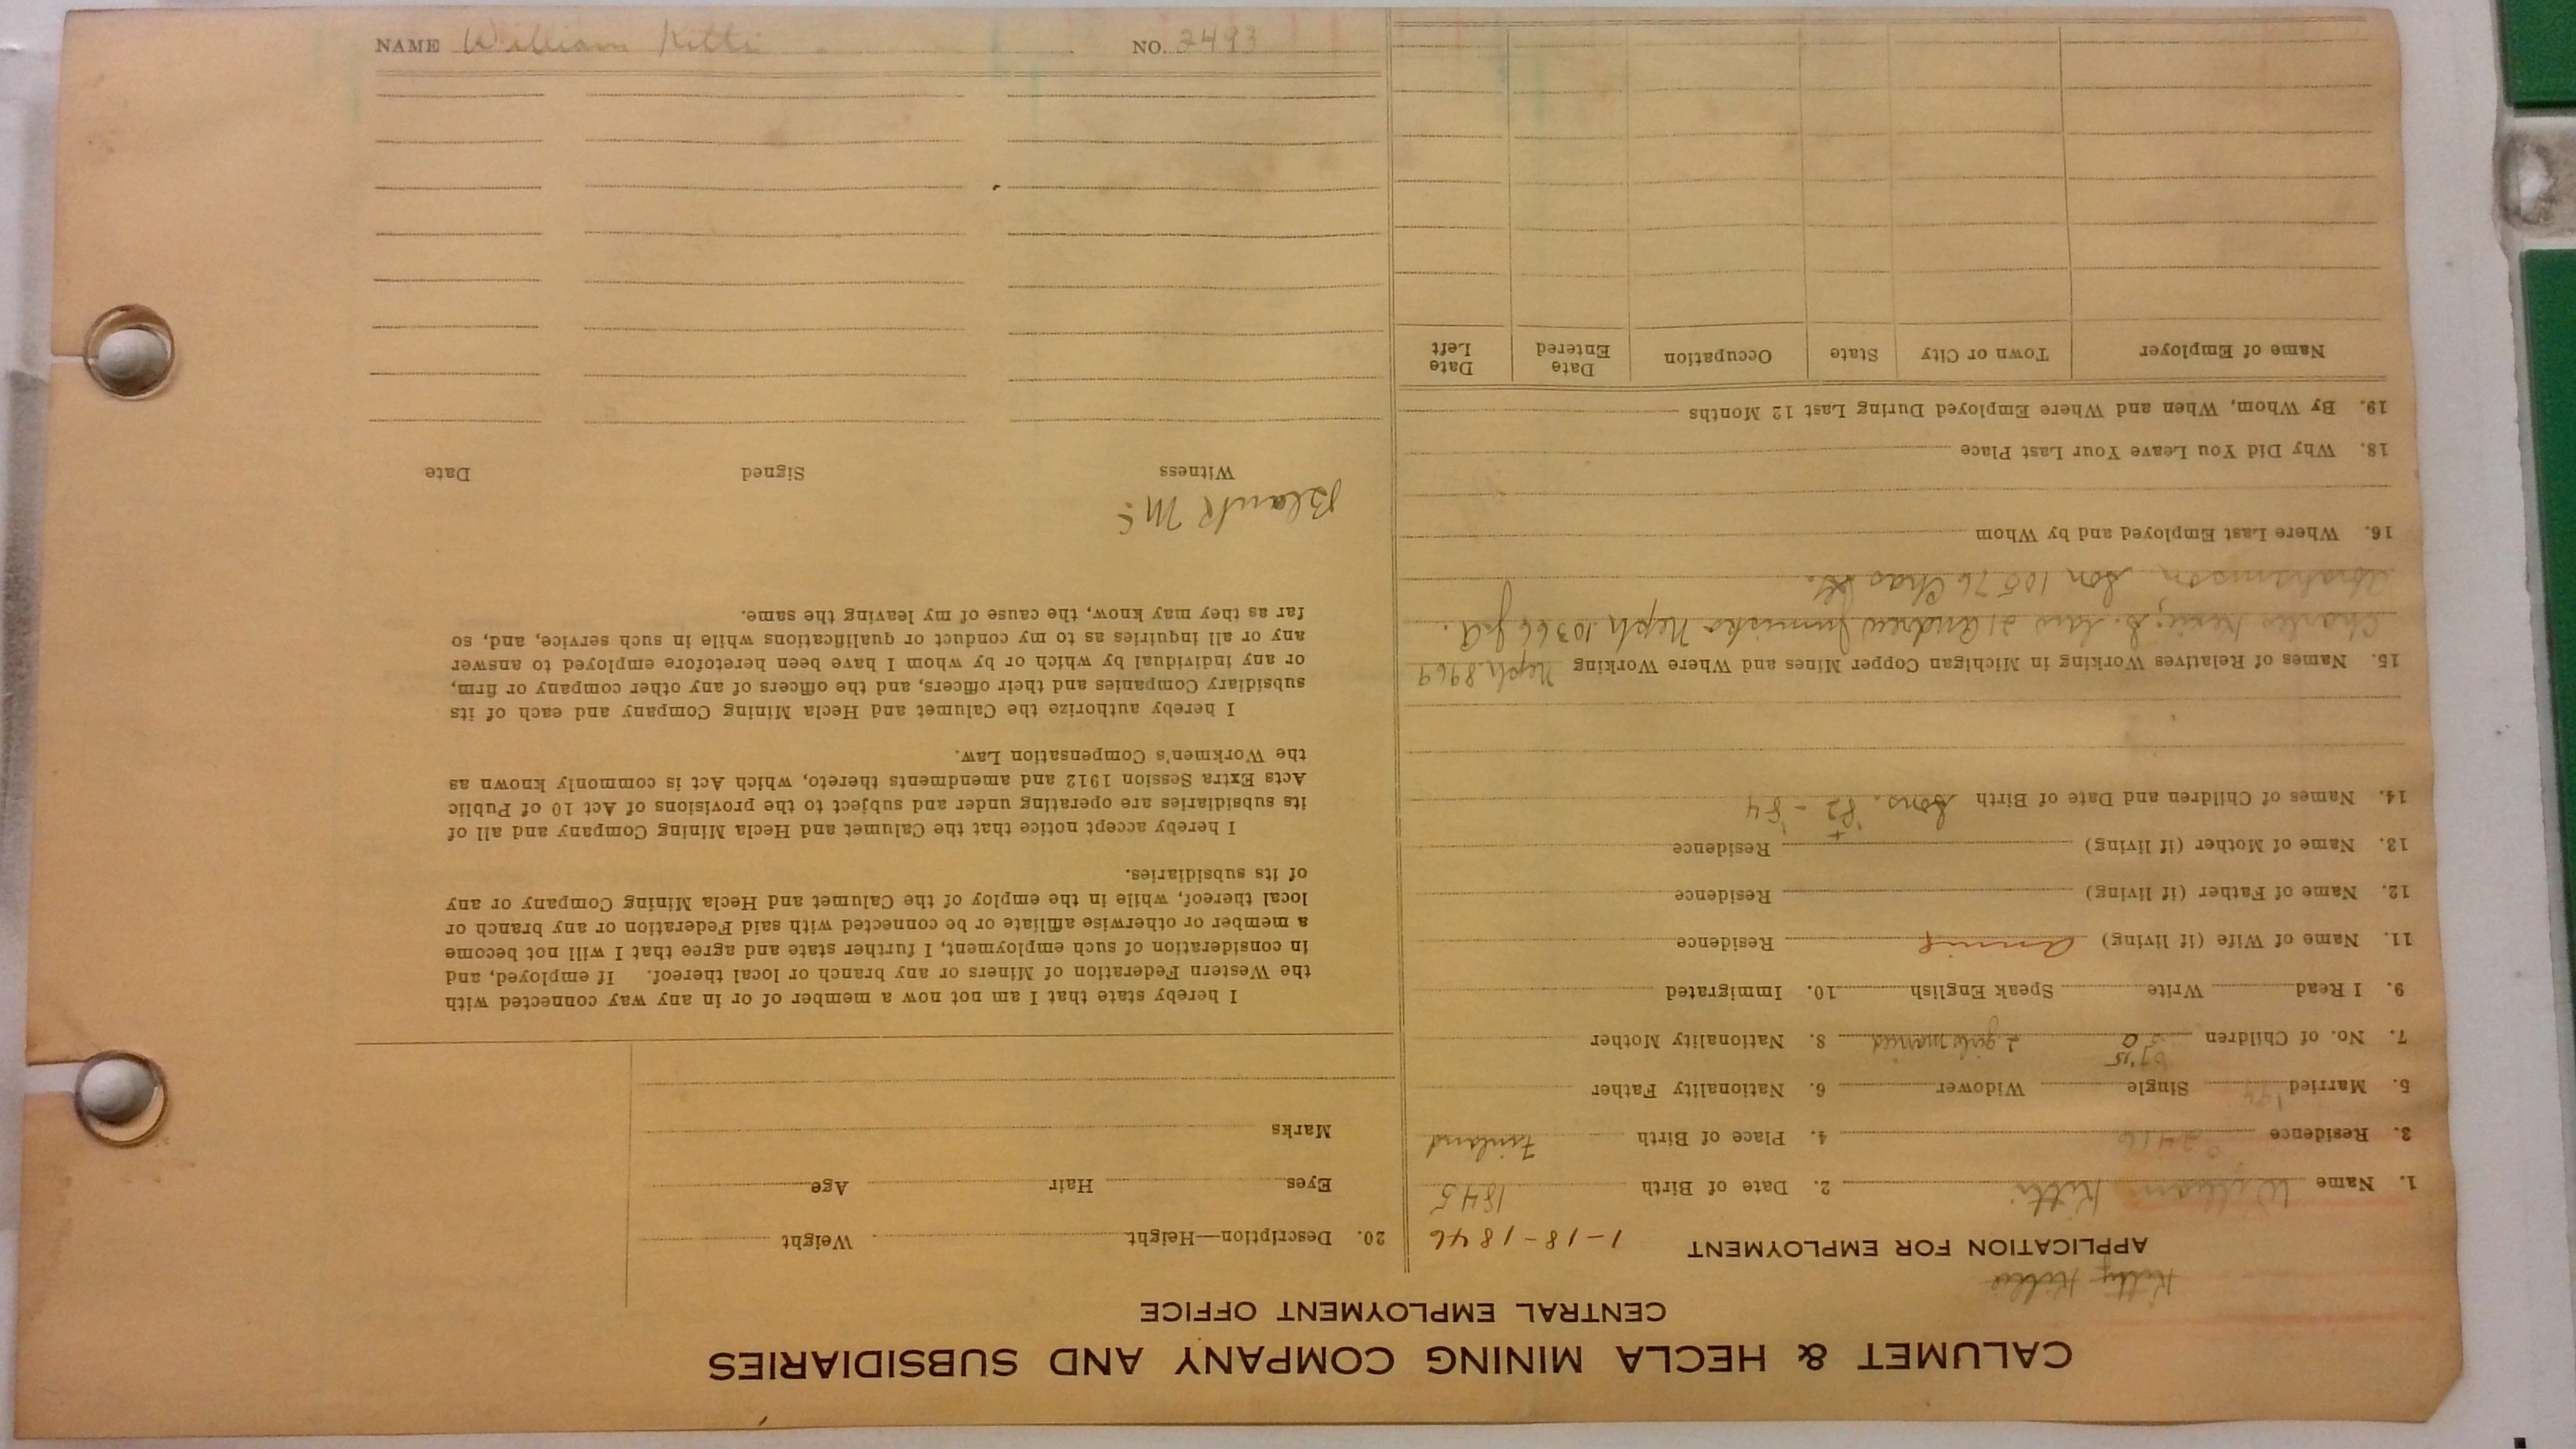 CALUMET & HECLA MINING COMPANY AND SUBSIDIARIES
CENTRAL EMPLOYMENT OFFICE
Kitty
APPLICATION FOR EMPLOYMENT
1-18-1846
1. Name William Kitti 2. Date of Birth 1845
3. Residence 4. Place of Birth Finland
5. Married Single Widower 6. Nationality Father
7. No. of Children 2 girls married 8. Nationality Mother
9. I Read Write Speak English 10. Immigrated
11. Name of Wife (if living) Annie Residence
12. Name of Father (if living) Residence
13. Name of Mother (if living) Residence
14. Names of Children and Date of Birth Sons. '82 - '84
15. Names of Relatives Working in Michigan Copper Mines and Where Working Neph. 8969
Charles S. law 21 Andrew Neph 10366
son 10576 Chas
16. Where Last Employed and by Whom
18. Why Did You Leave Your Last Place
19. By Whom, When and Where Employed During Last 12 Months
Name of Employer Town or City State Occupation Date Entered Date Left
20. Description—Height Weight
Eyes Hair Age
Marks
I hereby state that I am not now a member of or in any way connected with
the Western Federation of Miners or any branch or local thereof. If employed, and
in consideration of such employment, I further state and agree that I will not become
a member or otherwise affiliate or be connected with said Federation or any branch or
local thereof, while in the employ of the Calumet and Hecla Mining Company or any
of its subsidiaries.
I hereby accept notice that the Calumet and Hecla Mining Company and all of
its subsidiaries are operating under and subject to the provisions of Act 10 of Public
Acts Extra Session 1912 and amendments thereto, which Act is commonly known as
the Workmen's Compensation Law.
I hereby authorize the Calumet and Hecla Mining Company and each of its
subsidiary Companies and their officers, and the officers of any other company or firm,
or any individual by which or by whom I have been heretofore employed to answer
any or all inquiries as to my conduct or qualifications while in such service, and, so
far as they may know, the cause of my leaving the same.
Blank
Witness Signed Date
NAME William Kitti NO. 2493